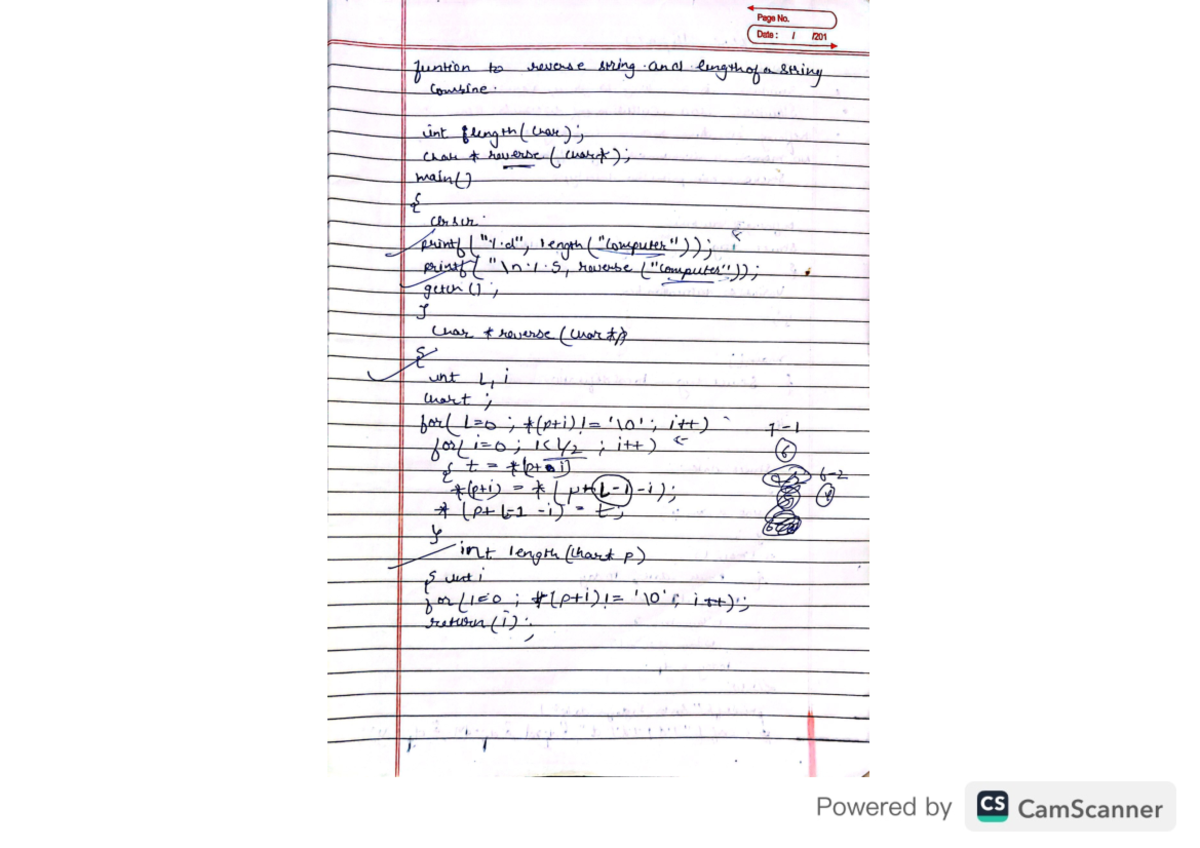 Page No.
Date : / /201
funtion to reverse string and length of a string
Combine.
int length(char);
char * reverse (char*);
main()
{
clrscr
printf("%d", length("computer")); 8
printf("\n%s, reverse ("computer"));
getch();
}
char * reverse (char *p)
{
int L, i
char t ;
for( l=0 ; *(p+i)!='\0'; i++)
for( i=0 ; i<l/2 ; i++)
{ t = *(p+i)
*(p+i) = * (p+L-1-i);
* (p+L-1-i) = t;
}
int length (char* p)
{ int i
for(i=0 ; *(p+i)!= '\0'; i++);
return(i);
7-1
6
6-2
Powered by CS CamScanner